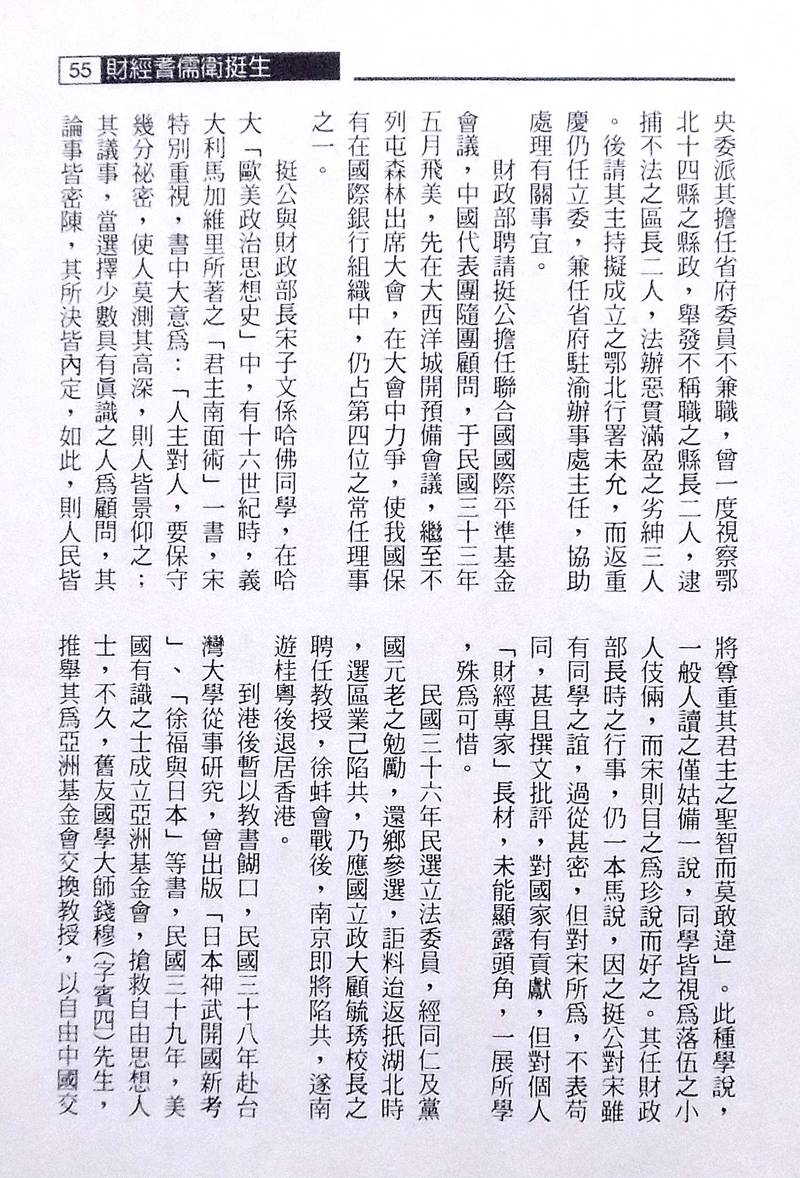 55 財經耆儒衛挺生
央委派其擔任省府委員不兼職，曾一度視察鄂
北十四縣之縣政，舉發不稱職之縣長二人，逮
捕不法之區長二人，法辦惡貫滿盈之劣紳三人
。後請其主持擬成立之鄂北行署未允，而返重
慶仍任立委，兼任省府駐渝辦事處主任，協助
處理有關事宜。
財政部聘請挺公擔任聯合國國際平準基金
會議，中國代表團隨團顧問，于民國三十三年
五月飛美，先在大西洋城開預備會議，繼至不
列屯森林出席大會，在大會中力爭，使我國保
有在國際銀行組織中，仍占第四位之常任理事
之一。
挺公與財政部長宋子文係哈佛同學，在哈
大「歐美政治思想史」中，有十六世紀時，義
大利馬加維里所著之「君主南面術」一書，宋
特別重視，書中大意爲：「人主對人，要保守
幾分祕密，使人莫測其高深，則人皆景仰之；
其議事，當選擇少數具有眞識之人爲顧問，其
論事皆密陳，其所決皆內定，如此，則人民皆
將尊重其君主之聖智而莫敢違」。此種學說，
一般人讀之僅姑備一說，同學皆視爲落伍之小
人伎倆，而宋則目之爲珍說而好之。其任財政
部長時之行事，仍一本馬說，因之挺公對宋雖
有同學之誼，過從甚密，但對宋所爲，不表苟
同，甚且撰文批評，對國家有貢獻，但對個人
「財經專家」長材，未能顯露頭角，一展所學
，殊爲可惜。
民國三十六年民選立法委員，經同仁及黨
國元老之勉勵，還鄉參選，詎料迨返抵湖北時
，選區業已陷共，乃應國立政大顧毓琇校長之
聘任教授，徐蚌會戰後，南京即將陷共，遂南
遊桂粵後退居香港。
到港後暫以教書餬口，民國三十八年赴台
灣大學從事研究，曾出版「日本神武開國新考
」、「徐福與日本」等書，民國三十九年，美
國有識之士成立亞洲基金會，搶救自由思想人
士，不久，舊友國學大師錢穆(字賓四)先生，
推舉其爲亞洲基金會交換教授，以自由中國交